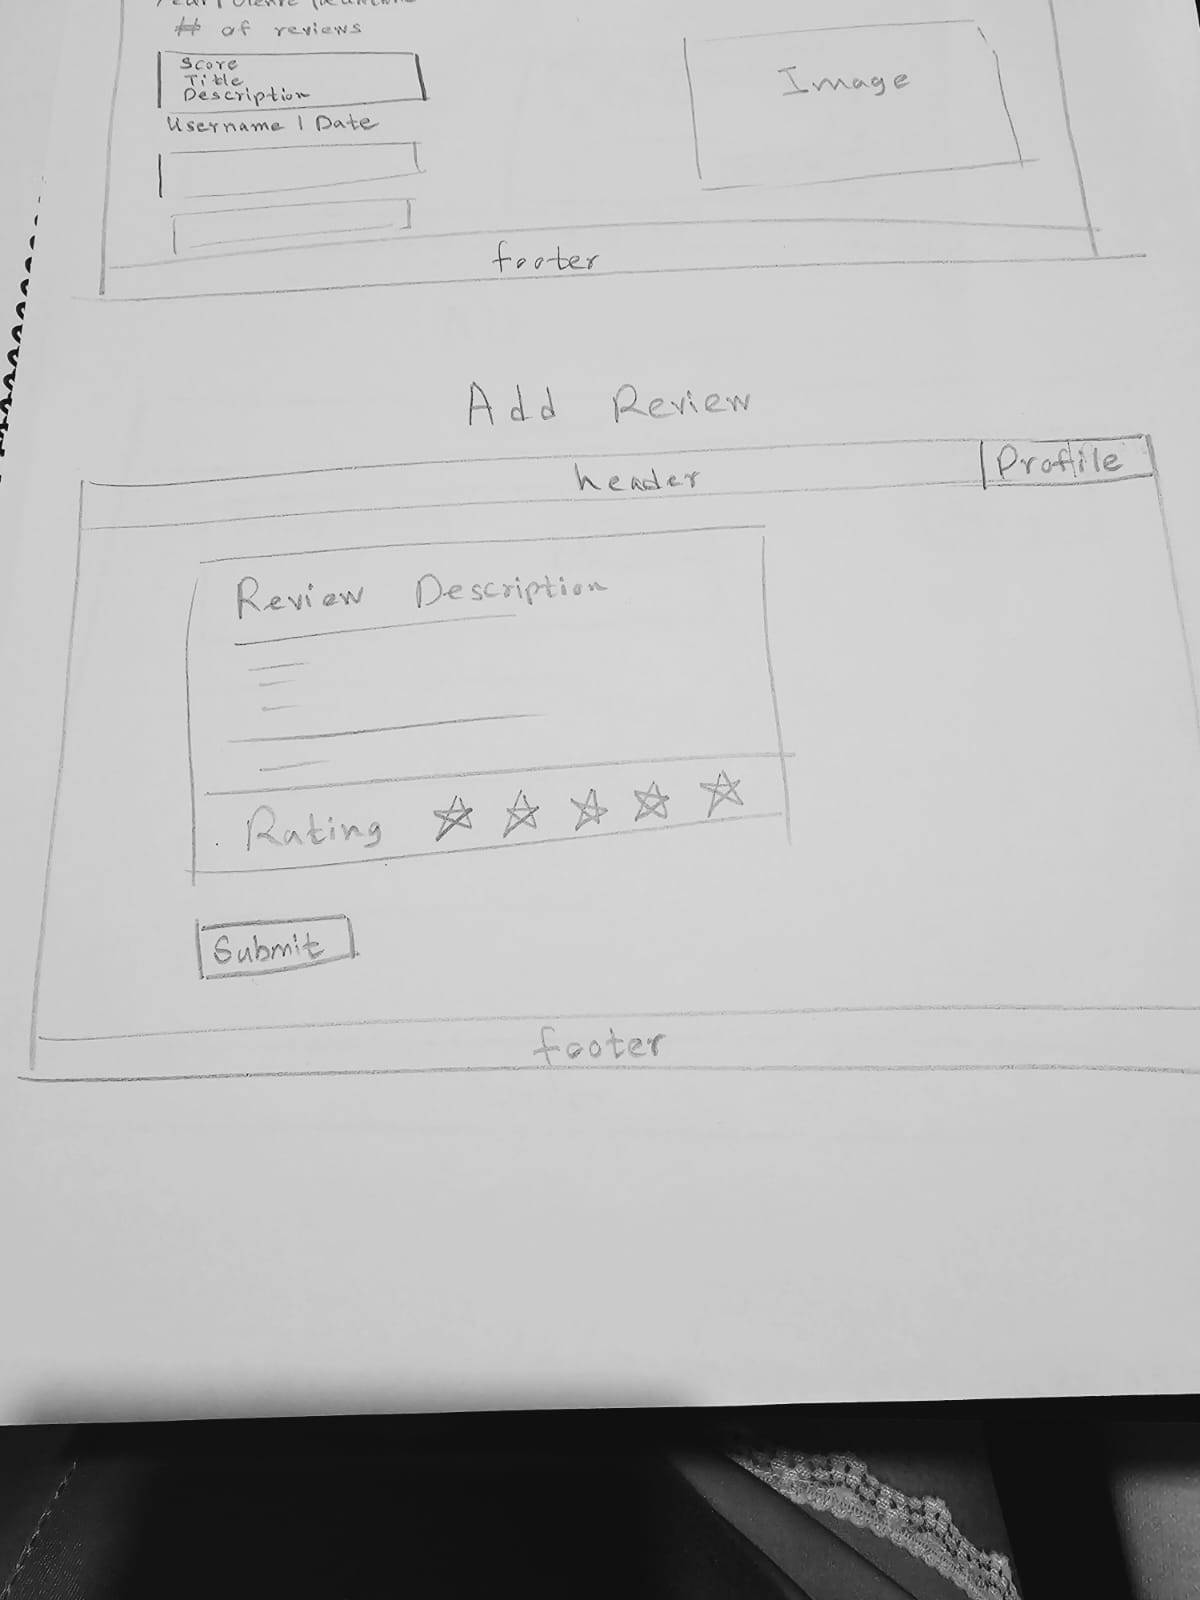 # of reviews
Score
Title
Description
Username | Date
Image
footer
Add Review
header
Profile
Review Description
Rating
Submit
footer